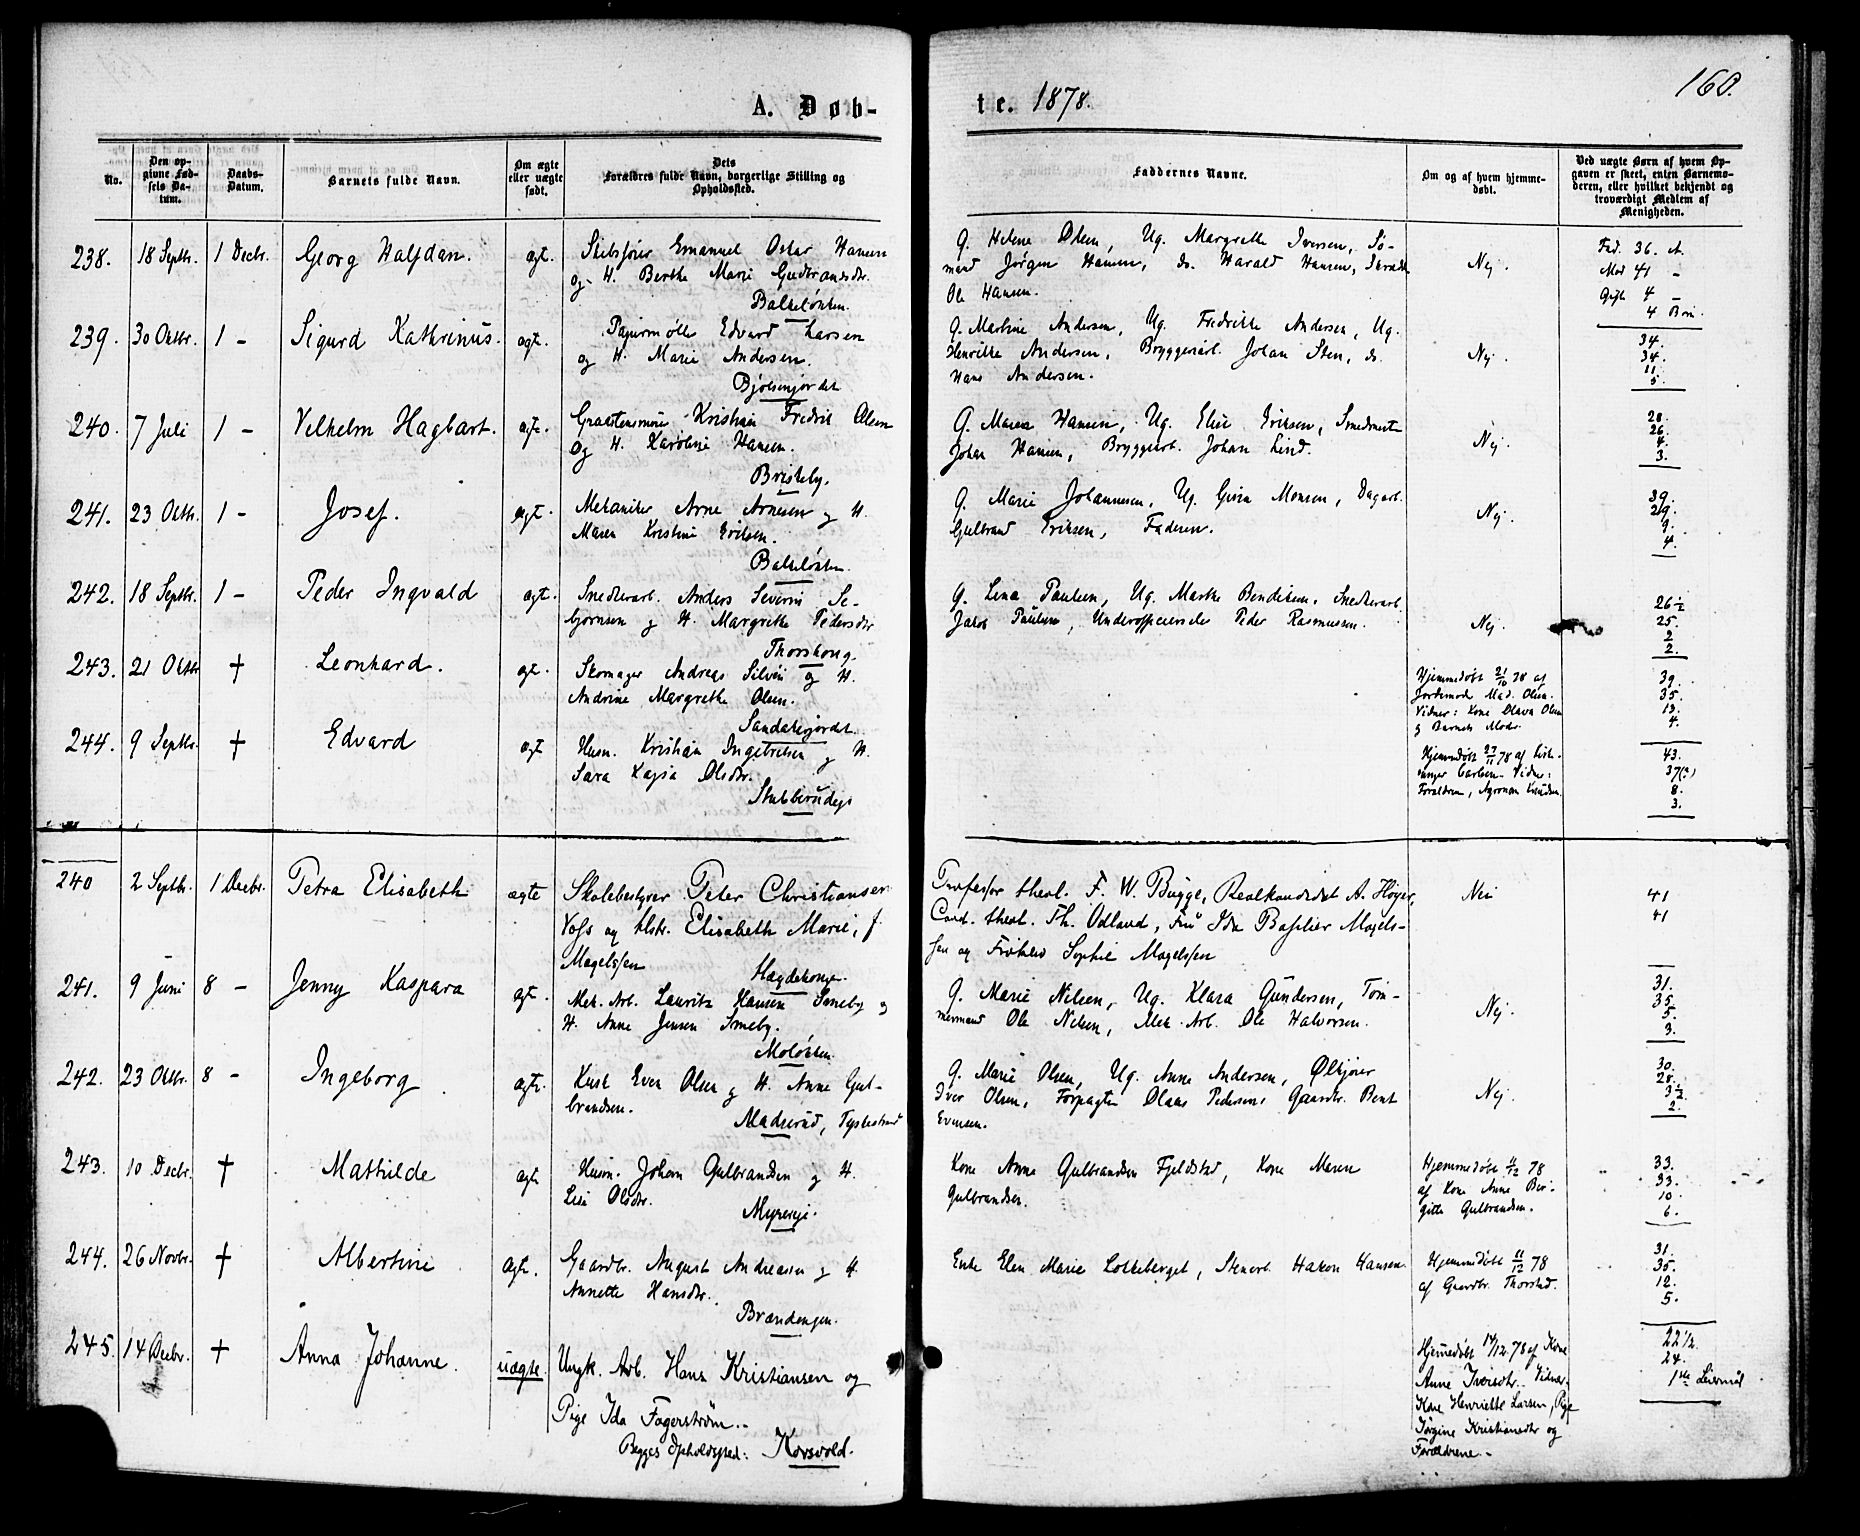 160.
A. Døb-
te. 1878.
No.
Den op-
givne Fød-
sels Da-
tum.
Daabs-
Datum.
Barnets fulde Navn.
Om ægte
eller uægte
født.
Dets
Forældres fulde Navn, borgerlige Stilling og
Opholdssted.
Faddernes Navne.
Om og af hvem hjemme-
døbt.
Ved uægte Børn af hvem Op-
gaven er skeet, enten Barnemo-
deren, eller hvilket bekjendt og
troværdigt Medlem af
Menigheden.
238. 18 Septbr. 1 Decbr. Georg Halfdan. ægt. Skibsfører Emanuel Oskar Hansen
og H. Berthe Marie Gudbrandsdr.
Balkeløkken.
G. Helene Olsen, Ug. Margrethe Iversen, Sø-
mand Jørgen Hansen, do. Harald Hansen,
Ole Hansen.
Nej.
Fad. 36. A.
Mod 41 -
Gift 4 -
4 Børn.
239. 30 Oktbr. 1 - Sigurd Kathrinus. ægt. Papirmølle Edvard Larsen
og H. Marie Andersen.
Bjølsenjordet
G. Martine Andersen, Ug. Fredrikke Andersen, Ug.
Henrikke Andersen, Bryggeriarb. Johan Sten, do.
Hans Andersen.
Nej.
34.
34.
11.
5.
240. 7 Juli 1 - Vilhelm Hagbart. ægt. Kristian Fredrik Olsen
og H. Karoline Hansen.
Briskeby.
G. Maren Hansen, Ug. Elise Eriksen, Smedmester
Johan Hansen, Bryggeriarb. Johan Lind.
Nej.
28.
26.
4.
3.
241. 23 Oktbr. 1 - Josef. ægt. Mekaniker Arne Arnesen og H.
Maren Kristine Eriksen.
Balkeløkken.
G. Marie Johannesen, Ug. Gina Monsen, Dagarb.
Gulbrand Eriksen, Faderen.
Nej.
39.
29.
9.
4.
242. 18 Septbr. 1 - Peder Ingvald ægt. Snedkerarb. Anders Severin Se-
bjørnsen og H. Margrethe Pedersdr
Thorshaug.
G. Lena Paulsen, Ug. Marthe Bendiksen, Snedkerarb.
Jakob Paulsen, Underofficerselev Peder Rasmussen.
Nej.
26 1/2
25.
2
2.
243. 21 Oktbr † Leonhard. ægt. Skomager Andreas Silvén og H.
Andrine Margrethe Olsen.
Sandakerjordet.
Hjemmedøbt 21/10 78 af
Jordemod. Mad. Olsen.
Vidner: Kone Olava Olsen
og Barnets Moder.
39.
35.
13.
4.
244. 9 Septbr. † Edvard ægt Husm. Kristian Ingebretsen og H.
Sara Kajsa Olsdr.
Stubberudejet
Hjemmedøbt 27/11 78 af
Carlsen. Vidner:
Forældrene, Agronom Knudsen.
43.
37(?)
8.
3.
240 2 Septbr. 1 Decbr. Petra Elisabeth ægte Skolebestyrer Peter Christiansen
Voss og Hstr. Elisabeth Marie, f.
Magelssen
Hægdehougen
Professor theol. F. W. Bugge, Realkandidat A. Høyer,
Cand. theol. Th. Odland, Fru Ida Basilier Magels-
sen og Frøken Sophie Magelssen
Nei
41
41
241. 9 Juni 8 - Jenny Kaspara ægt. Mek. Arb. Lauritz Hansen Smeby og
H. Anne Jensen Smeby.
Moløkken
G. Marie Nilsen, Ug. Klara Gundersen, Tøm-
mermand Ole Nilsen, Mek. Arb. Ole Halvorsen.
Nej.
31.
35.
5.
3.
242. 23 Oktbr. 8 - Ingeborg ægte. Kusk Even Olsen og H. Anne Gul-
brandsen.
Madserud, Tyskestrand
G. Marie Olsen, Ug. Anne Andersen, Ølkjører
Iver Olsen, Forpagter Olaus Pedersen, Gaardbr. Bent
Evensen.
Nej.
30.
28.
3 1/2
2.
243. 10 Decbr. † Mathilde ægte Husm. Johan Gulbrandsen og H.
Lise Olsdr.
Myrereje.
Kone Anne Gulbrandsen Fjeldstad, Kone Maren
Gulbrandsen.
Hjemmedøbt 11/12 78
af Kone Anne Bir-
gitte Gulbrandsen.
33.
33.
10
6.
244. 26 Novbr. † Albertine ægte. Gaardbr. August Andreassen og H.
Annette Hansdr.
Brændengen.
Enke Elen Marie Lokkeberget, Stenarb. Hakon Hansen.
Hjemmedøbt 11/12 78
af Gaardbr. Thorstad.
31.
35.
12.
5.
245. 14 Decbr. † Anna Johanne. uægte. Ungk. Arb. Hans Kristiansen og
Pige Ida Fagerstrøm.-
Begges Opholdssted: Korsvold.
Hjemmedøbt 14/12 78 af Kone
Anne Iversdtr. Vidner.
Kone Henriette Larsen, Pige
Jørgine Kristiansdtr og
Forældrene.-
22 1/2.
24.
1ste Leiermål